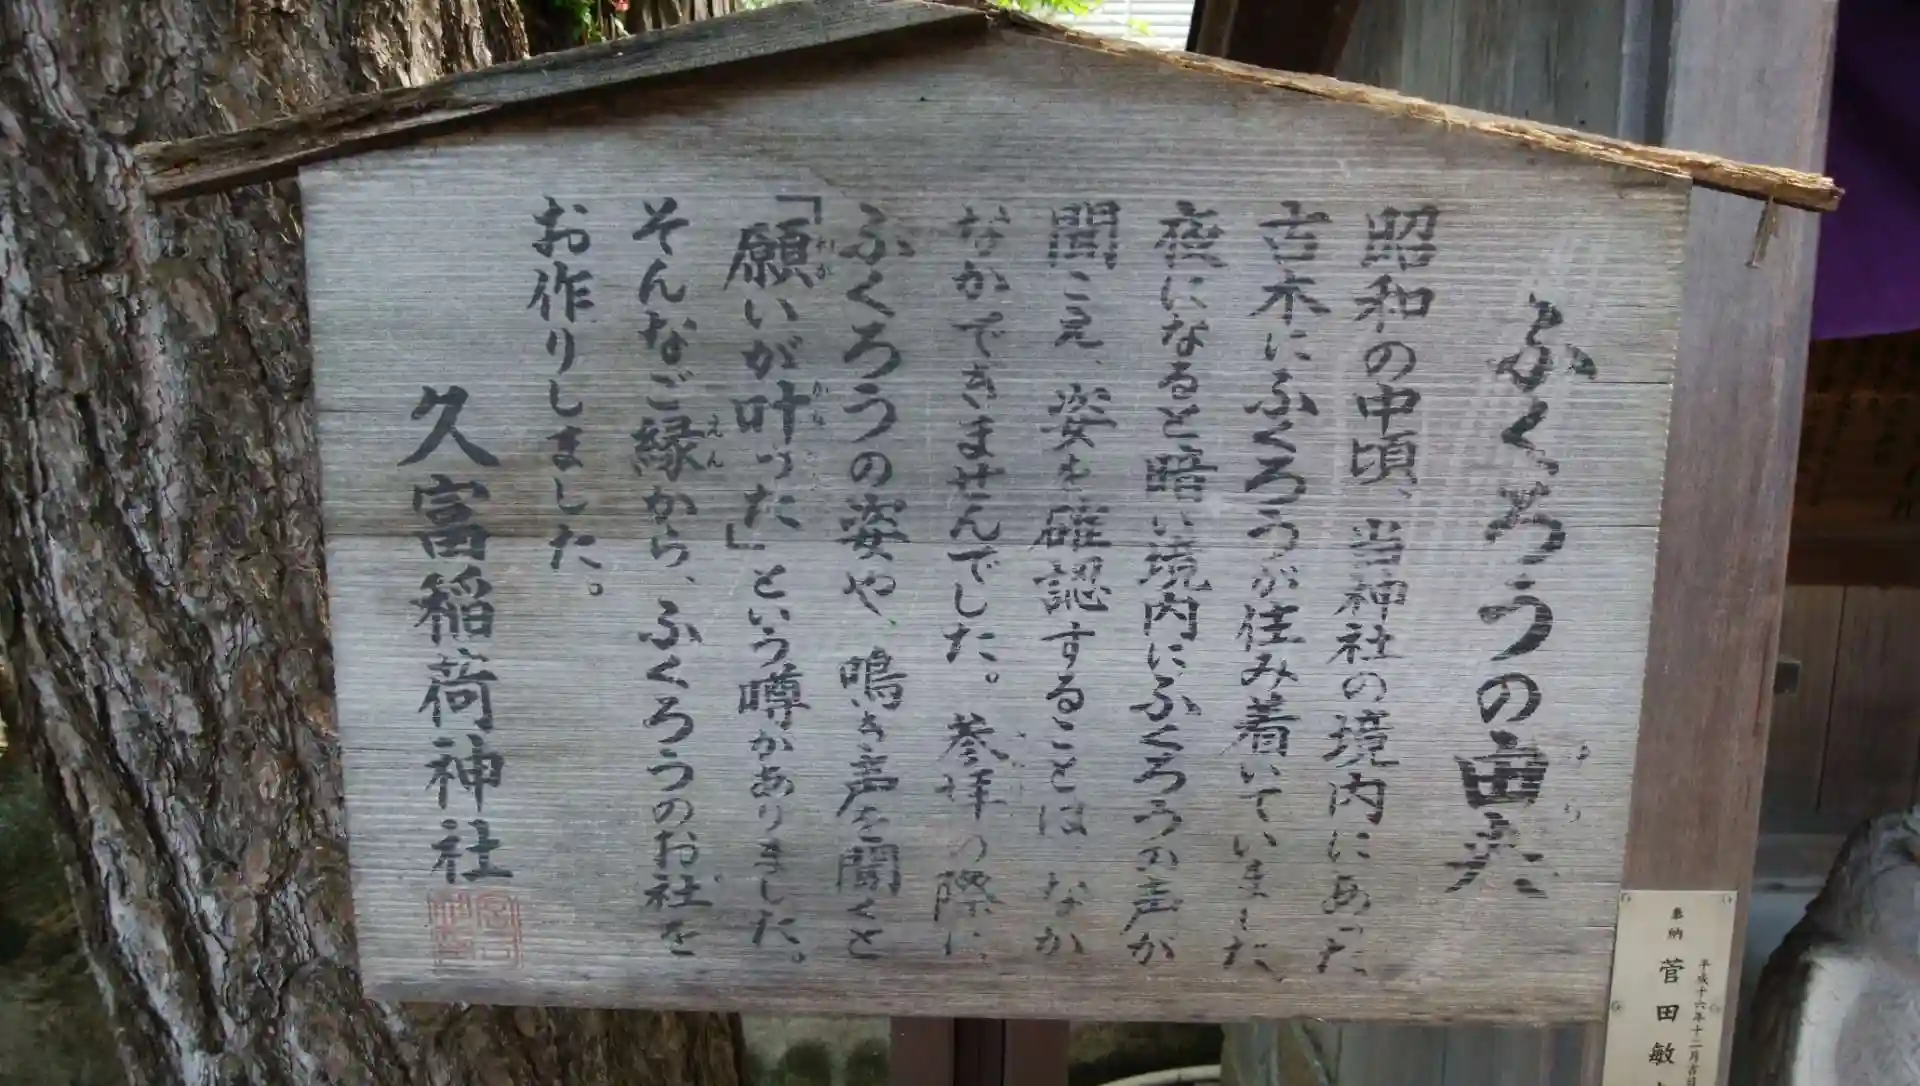 ふくろうの由来
昭和の中頃、当神社の境内にあった
古木にふくろうが住み着いていました
夜になると暗い境内にふくろうの声が
聞こえ、姿を確認することは、なか
なかできませんでした。参拝の際に、
ふくろうの姿や、鳴き声を聞くと
「願いが叶った」という噂がありました。
ねが
かな
そんなご縁から、ふくろうのお社を
えん
お作りしました。
久富稲荷神社
奉納
平成十六年十二月吉
菅田敏